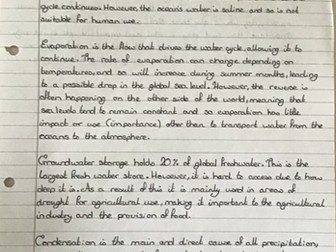 cycle continues. However, the oceanis water is saline and so is not
suitable for human use.
Evaporation is the flow that drives the water cycle, allowing it to
continue. The rate of evaporation can change depending on
temperatures, and so will increase during summer months, leading
to a possible drop in the global sea level. However, the reverse is
often happening on the other side of the world, meaning that
sea levels tend to remain constant and so evaporation has little
impact or use (importance) other than to transport water from the
oceans to the atmosphere.
Groundwater storage holds 20% of global freshwater. This is the
largest fresh water store. However, it is hard to access due to how
deep it is. As a result of this it is mainly used in areas of
drought for agricultural use, making it important to the agricultural
industry and the provision of food.
Condensation is the main and direct cause of all precipitation,